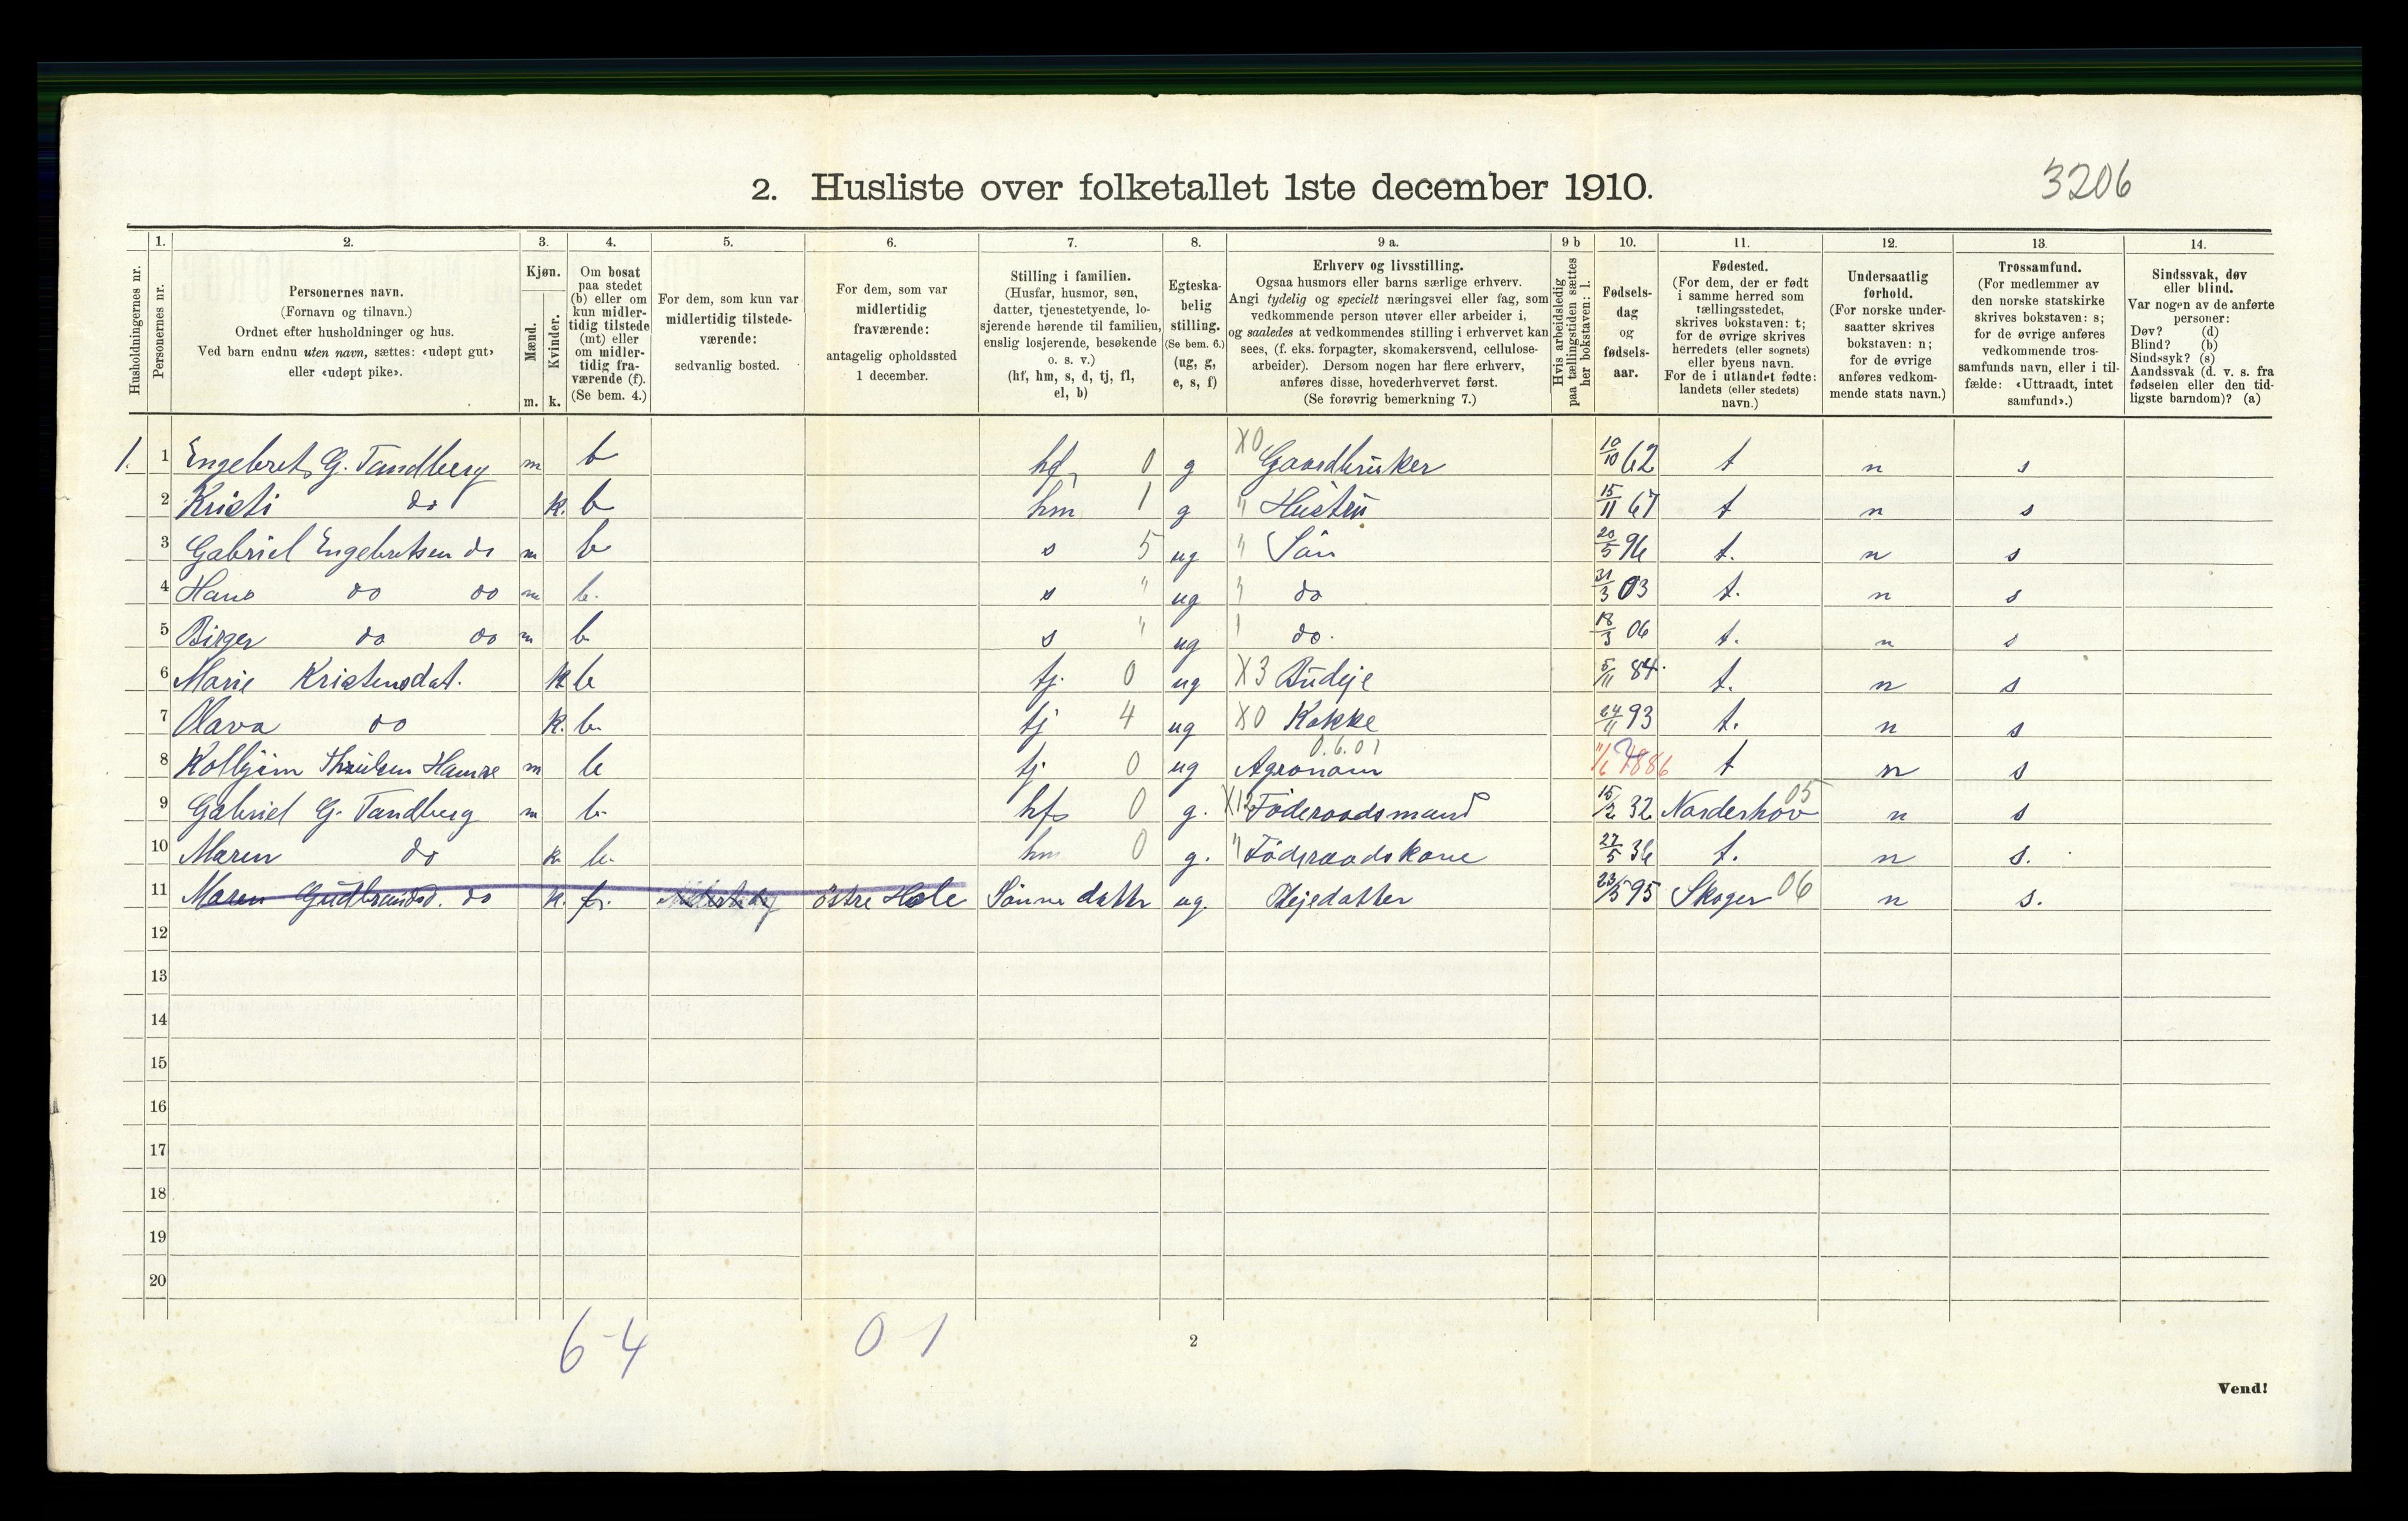 2. Husliste over folketallet 1ste december 1910.
3206
1. 2. 3. 4. 5. 6. 7. 8. 9 a. 9 b 10. 11. 12. 13. 14.
Husholdningernes nr.
Personernes nr.
Personernes navn.
(Fornavn og tilnavn.)
Ordnet efter husholdninger og hus.
Ved barn endnu uten navn, sættes: «udøpt gut»
eller «udøpt pike».
Kjøn.
Mænd.
Kvinder.
m. k.
Om bosat
paa stedet
(b) eller om
kun midler-
tidig tilstede
(mt) eller
om midler-
tidig fra-
værende (f).
(Se bem. 4.)
For dem, som kun var
midlertidig tilstede-
værende:
sedvanlig bosted.
For dem, som var
midlertidig
fraværende:
antagelig opholdssted
1 december.
Stilling i familien.
(Husfar, husmor, søn,
datter, tjenestetyende, lo-
sjerende hørende til familien,
enslig losjerende, besøkende
o. s. v.)
(hf, hm, s, d, tj, fl,
el, b)
Egteska-
belig
stilling.
(Se bem. 6.)
(ug, g,
e, s, f)
Erhverv og livsstilling.
Ogsaa husmors eller barns særlige erhverv.
Angi tydelig og specielt næringsvei eller fag, som
vedkommende person utøver eller arbeider i,
og saaledes at vedkommendes stilling i erhvervet kan
sees, (f. eks. forpagter, skomakersvend, cellulose-
arbeider). Dersom nogen har flere erhverv,
anføres disse, hovederhvervet først.
(Se forøvrig bemerkning 7.)
Hvis arbeidsledig
paa tællingstiden sættes
her bokstaven: l.
Fødsels-
dag
og
fødsels-
aar.
Fødested.
(For dem, der er født
i samme herred som
tællingsstedet,
skrives bokstaven: t;
for de øvrige skrives
herredets (eller sognets)
eller byens navn.
For de i utlandet fødte:
landets (eller stedets)
navn.)
Undersaatlig
forhold.
(For norske under-
saatter skrives
bokstaven: n;
for de øvrige
anføres vedkom-
mende stats navn.)
Trossamfund.
(For medlemmer av
den norske statskirke
skrives bokstaven: s;
for de øvrige anføres
vedkommende tros-
samfunds navn, eller i til-
fælde: «Uttraadt, intet
samfund».)
Sindssvak, døv
eller blind.
Var nogen av de anførte
personer:
Døv? (d)
Blind? (b)
Sindssyk? (s)
Aandssvak (d. v. s. fra
fødselen eller den tid-
ligste barndom)? (a)
1. 1 Engebret G. Tandberg m b hf 0 g X0 Gaardbruker 10/10 62 t n s
2 Kristi do k. b hm 1 g " Hustru 15/11 67 t n s
3 Gabriel Engebretsen do m b s 5 ug " Sön 20/5 96 t. n s
4 Hans do do m b. s " ug " do 31/3 03 t. n s
5 Birger do do m b s " ug " do. 18/3 06 t. n s
6 Marie Kristensdat. k b tj. 0 ug X3 Budeje 5/11 84. t. n s
7 Olava do k. b. tj 4 ug X0 Kokke 24/11 93 t. n s
8 Kolbjörn Hamre m b tj 0 ug Agronom 0.6.01 11/6 1886 t n s
9 Gabriel G. Tandberg m b. hf 0 g. X12 Föderaadsmand 15/2 32 Norderhov 05 n s
10 Maren do k. b. hm 0 g. " Föderaadskone 27/5 36 t. n s.
11 Maren Gudbrandsd. do k. f. östre Hole Sönne datter ug. Plejedatter 23/5 95 Skoger 06 n s.
12
13
14
15
16
17
18
19
20
6-4
0-1
2
Vend!